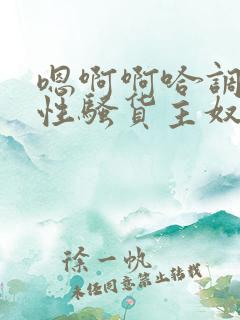 嗯啊啊哈调
性骚货主奴
徐一帆
未经同意禁止转载